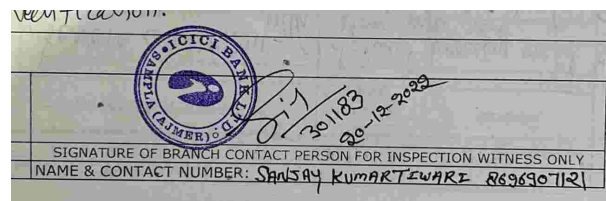 verification.
ICICI BANK LTD.
SAMPLA (AJMER)
301183
20-12-2022
SIGNATURE OF BRANCH CONTACT PERSON FOR INSPECTION WITNESS ONLY
NAME & CONTACT NUMBER: SANJAY KUMAR TIWARI 8696907121